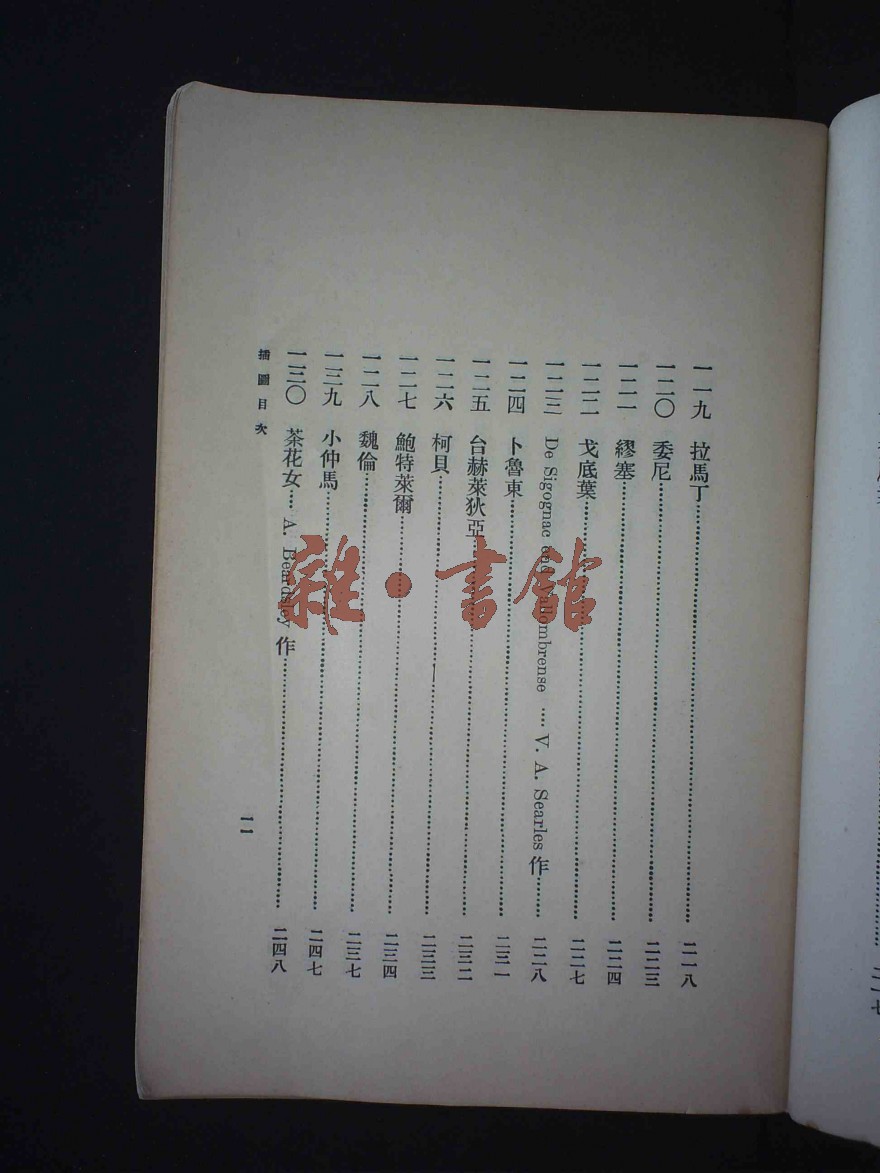 一一九 拉馬丁……二一八
一二〇 委尼……二二三
一二一 繆塞……二二四
一二二 戈底葉……二二七
一二三 De Sigognac and Vallombrense … V. A. Searles 作……二二八
一二四 卜魯東……二三一
一二五 台赫萊狄亞……二三二
一二六 柯貝……二三三
一二七 鮑特萊爾……二三四
一二八 魏倫……二三七
一三九 小仲馬……二四七
一三〇 茶花女… A. Beardsley 作……二四八
插圖目次 一一
雜·書館